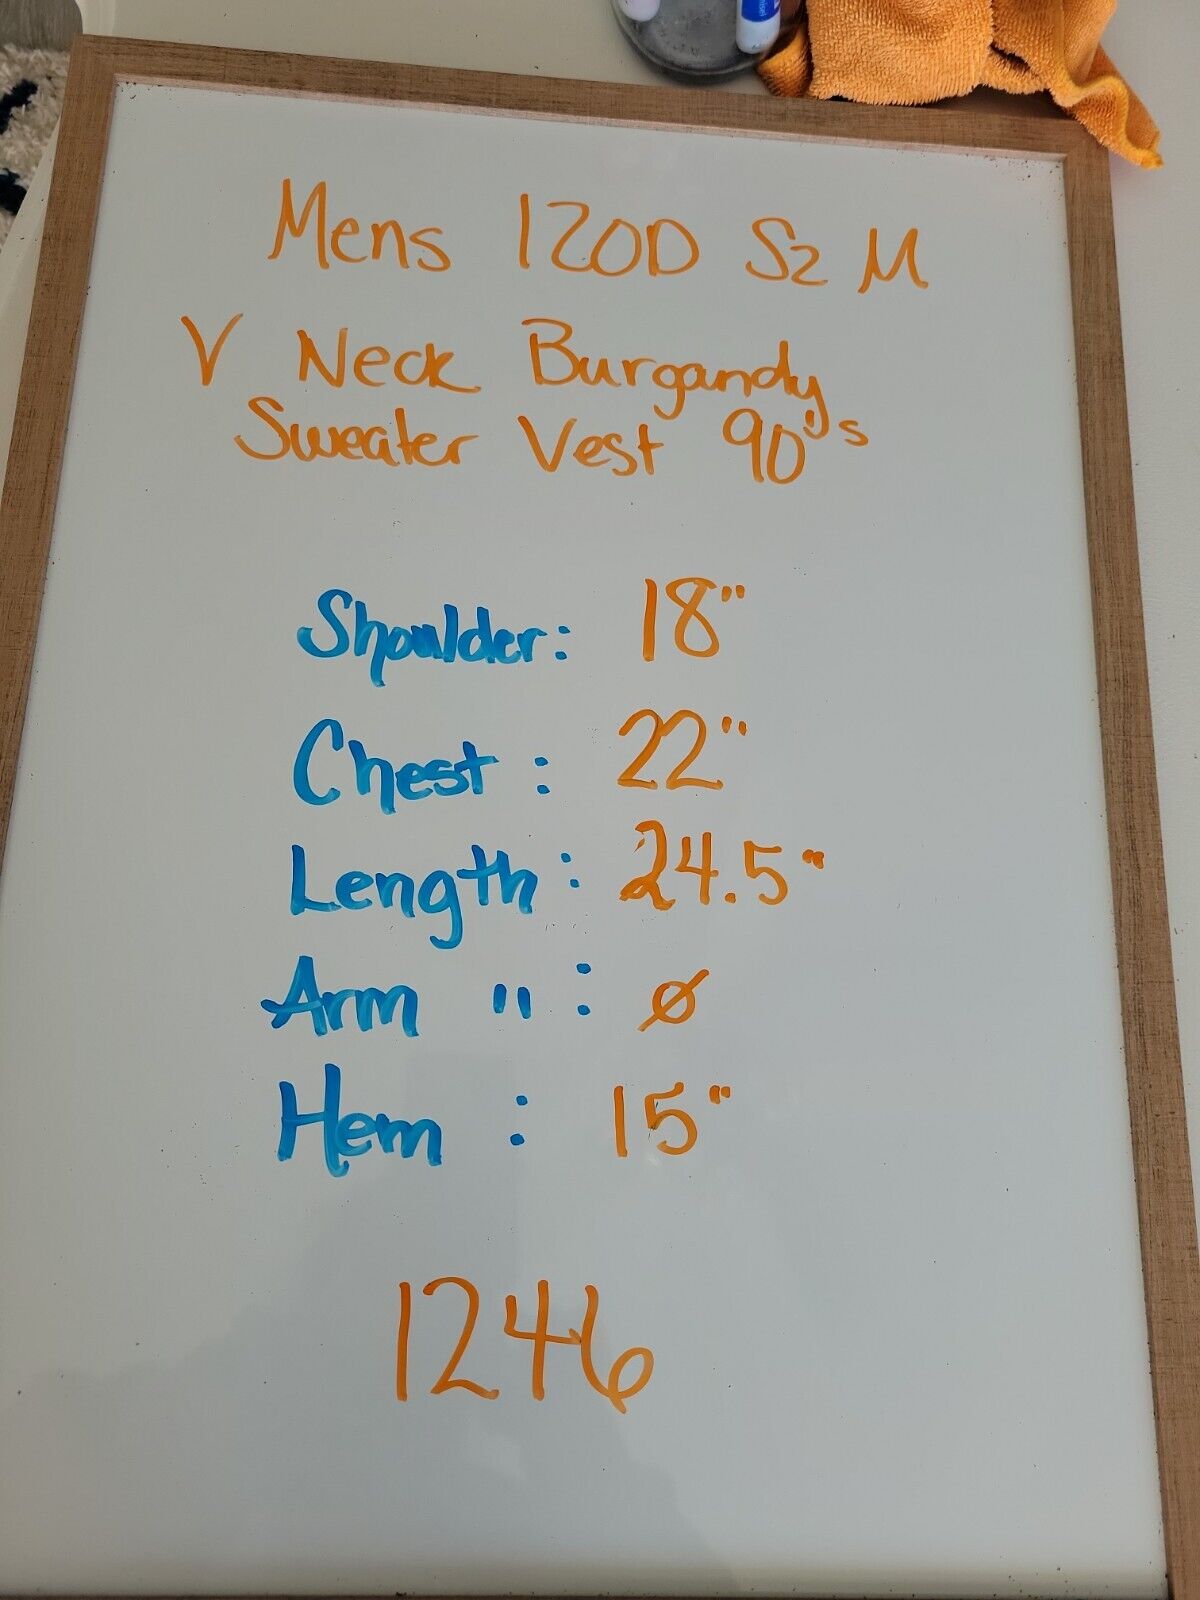 Mens IZOD Sz M
V Neck Burgandy
Sweater Vest 90's
Shoulder: 18"
Chest: 22"
Length: 24.5"
Arm ": Ø
Hem: 15"
1246